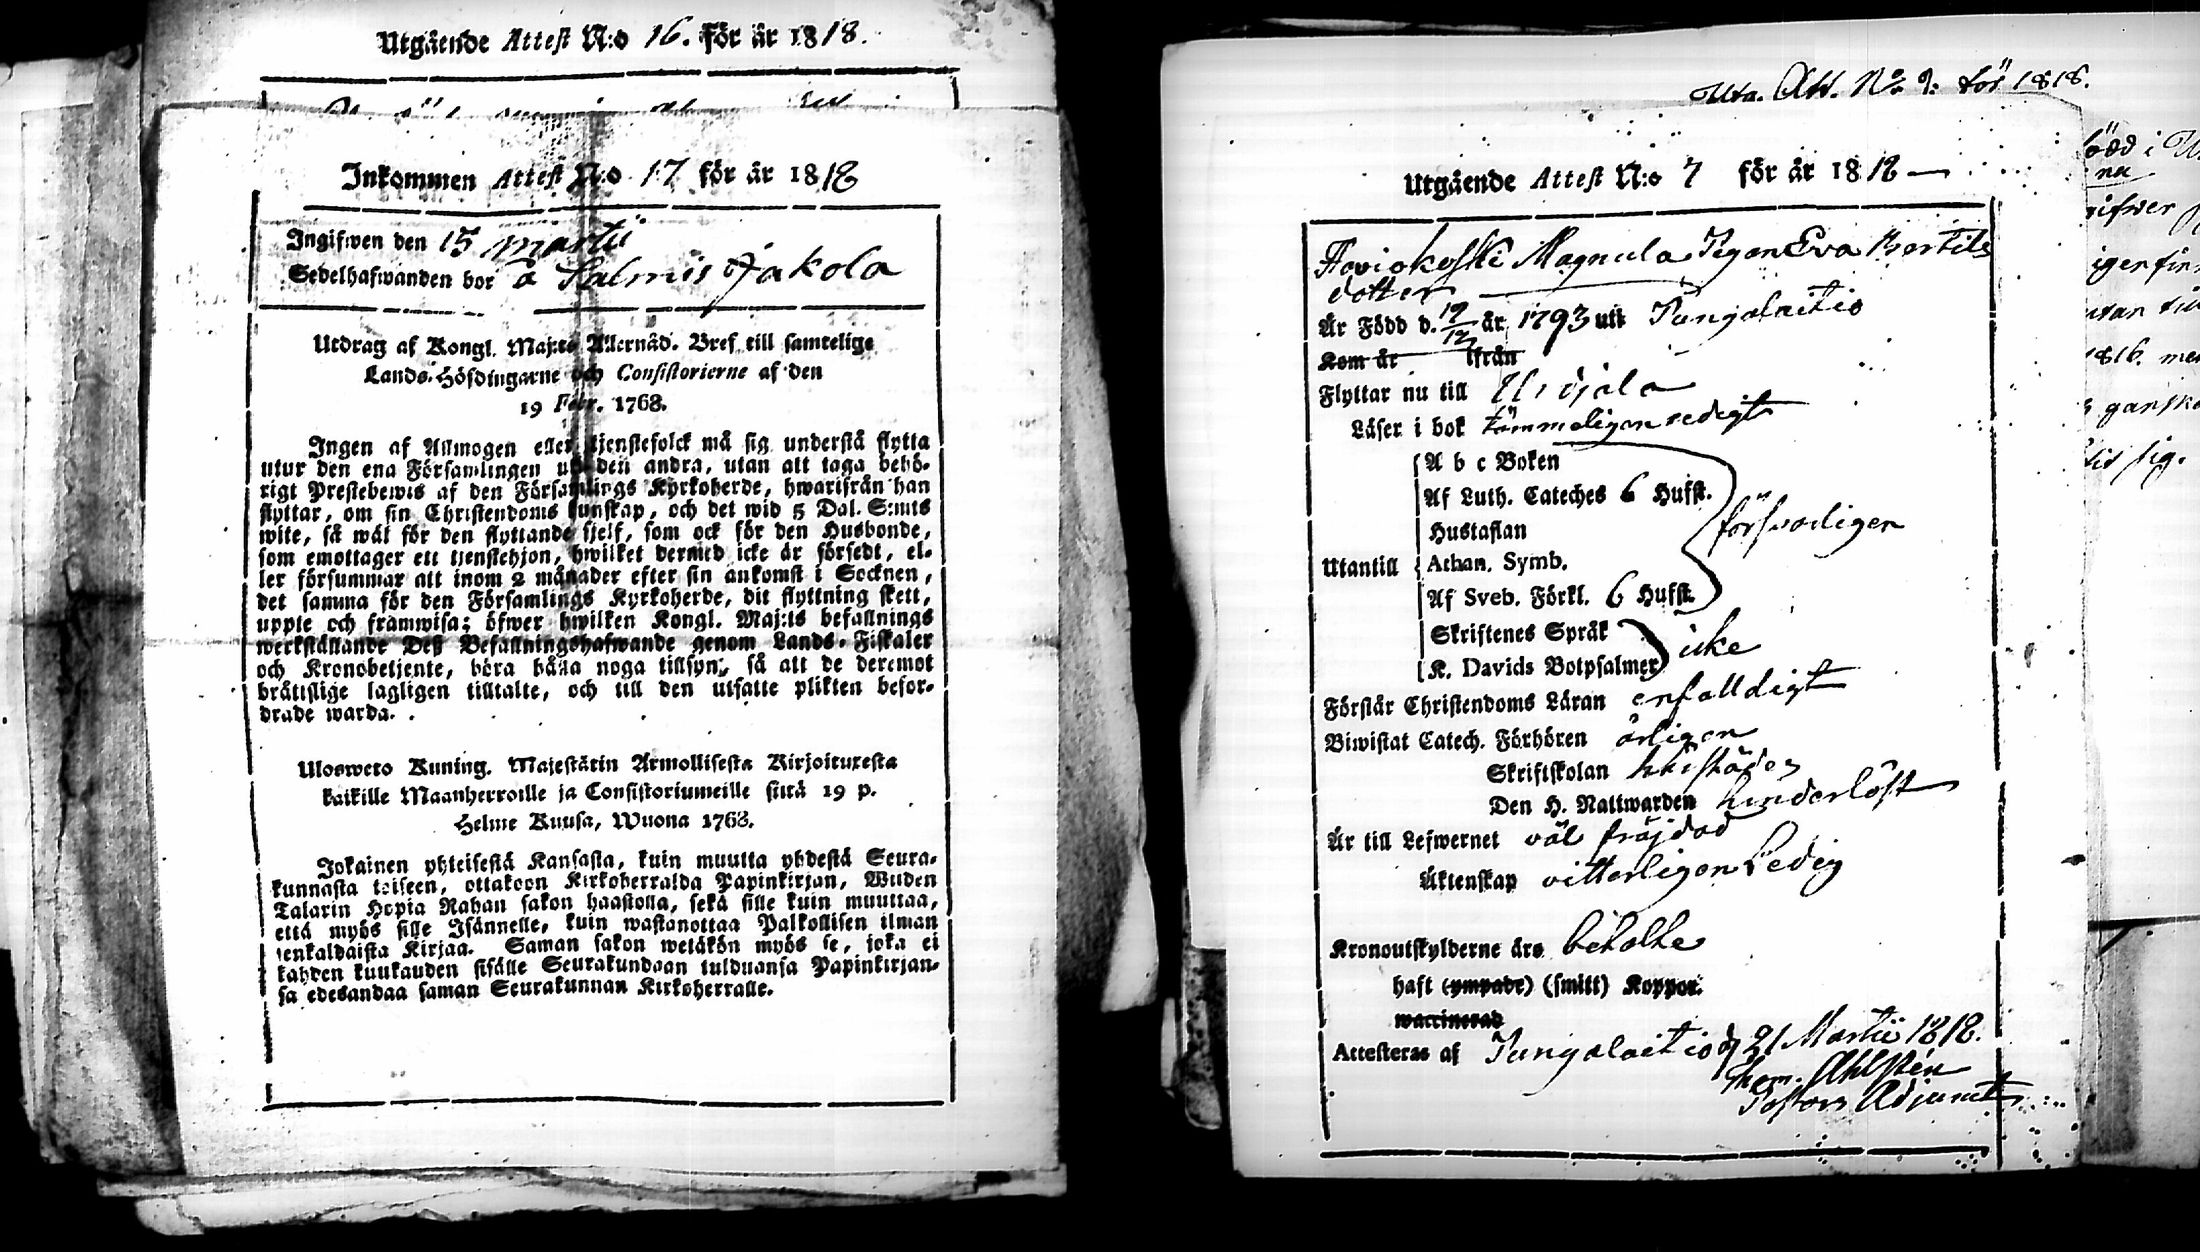 Utgående Attest N:o 16. för år 1818.
Inkommen Attest N:o 17 för år 1818
Ingifwen den 15 Martii
Sedelhafwanden bor å Salmis Jakola
Utdrag af Kongl. Maj:ts Allernåd. Bref till samtelige
Lands-Höfdingarne och Consistorierne af den
19 Febr. 1768.
Ingen af Allmogen eller tjenstefolck må sig understå flytta
utur den ena Församlingen uti den andra, utan att taga behö-
rigt Prestebewis af den Församlings Kyrkoherde, hwarifrån han
flyttar, om sin Christendoms kunskap, och det wid 5 Dal. S:mts
wite, så wäl för den flyttande sjelf, som ock för den Husbonde,
som emottager ett tjenstehjon, hwilket dermed icke är försedt, el-
ler försummar att inom 2 månader efter sin ankomst i Socknen,
det samma för den Församlings Kyrkoherde, dit flyttning skett,
uppte och framwisa; öfwer hwilken Kongl. Maj:ts befallnings
werkställande Deß Befallningshafwande genom Lands-Fiskaler
och Kronobetjente, böra hålla noga tillsyn, så att de deremot
bråttslige lagligen tilltalte, och till den utsatte plikten befor-
drade warda.
Ulosweto Kuning. Majestätin Armollisesta Kirjoituxesta
kaikille Maanherroille ja Consistoriumeille siitä 19 p.
Helme Kuusa, Wuona 1768.
Jokainen yhteisestä Kansasta, kuin muutta yhdestä Seura-
kunnasta toiseen, ottakoon Kirkoherralda Papinkirjan, Wiiden
Talarin Hopia Rahan sakon haastolla, sekä sille kuin muuttaa,
että myös sille Isännelle, kuin wastanottaa Palkollisen ilman
senkaldaista Kirjaa. Saman sakon wetäkön myös se, joka ei
kahden kuukauden sisälle Seurakundaan tulduansa Papinkirjan-
sa edesandaa saman Seurakunnan Kirkoherralle.
Utg. Att. No 9: för 1818.
Utgående Attest N:o 7 för år 1818
Magnula Pigan Eva Bertils
dotter
Är Född d. 19/12 år 1793 uti Pungalaitio
Kom år ifrån
Flyttar nu till Urdjala
Läser i bok tämmeligen redigt
A b c Boken
Af Luth. Cateches 6 Hufst.
Hustaflan
försvarligen
Utantill Athan. Symb.
Af Sveb. Förkl. 6 Hufst.
Skriftenes Språk
icke
K. Davids Botpsalmer
Förstår Christendoms Läran enfaldigt
Biwistat Catech. Förhören årligen
Skriftskolan
Den H. Nattwarden hinderlöst
Är till Lefwernet väl fräjdad
Äktenskap vitterligen Ledig
Kronoutskylderne äro betalte
haft (ympade) (smitt) Koppor.
waccinerad
Attesteras af Pungalaitio d 21 Martii 1818.
Ahlstén
Pastors Adjunct